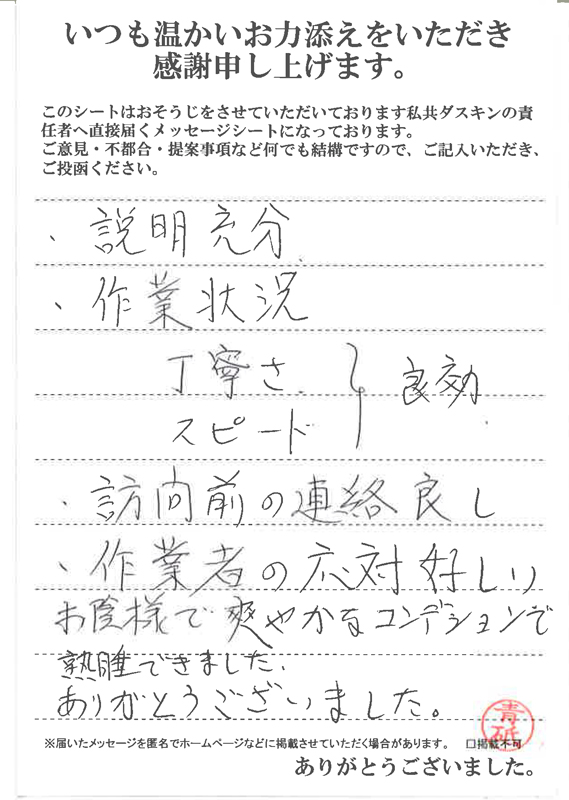 いつも温かいお力添えをいただき
感謝申し上げます。
このシートはおそうじをさせていただいております私共ダスキンの責
任者へ直接届くメッセージシートになっております。
ご意見・不都合・提案事項など何でも結構ですので、ご記入いただき、
ご投函ください。
、説明充分
、作業状況
丁寧さ
スピード
良効
、訪問前の連絡良し
、作業者の応対好しい
お陰様で爽やかなコンデションで
熟睡できました。
ありがとうございました。
青砥
※届いたメッセージを匿名でホームページなどに掲載させていただく場合があります。 □掲載不可
ありがとうございました。